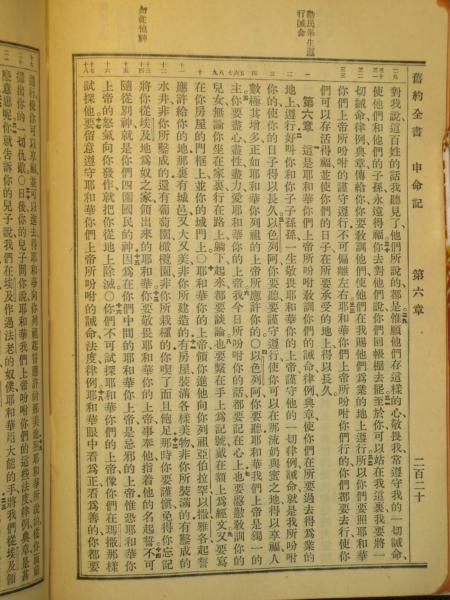 舊約全書 申命記 第六章 二百二十
勸民畢生遵
行誡命
勿從他神
對我說這百姓的話我聽見了他們所說的都是惟願他們存這樣的心敬畏我常遵守我的一切誡命
使他們和他們的子孫永遠得福你去對他們說你們回帳棚去罷至於你可以站在我這裏我要將一
切誡命律例典章傳給你你要教訓他們使他們在我賜他們爲業的地上遵行所以你們要照耶和華
你們上帝所吩咐的謹守遵行不可偏離左右耶和華你們上帝所吩咐你們行的你們都要去行使你
們可以存活得福並使你們的日子在所要承受的地上得以長久
第六章 這是耶和華你們上帝所吩咐教訓你們的誡命律例典章使你們在所要過去得爲業的
地上遵行好叫你和你子子孫孫一生敬畏耶和華你的上帝謹守他的一切律例誡命就是我所吩咐
你的使你的日子得以長久以色列阿你要聽要謹守遵行使你可以在那流奶與蜜之地得以享福人
數極其增多正如耶和華你列祖的上帝所應許你的○以色列阿你要聽耶和華我們上帝是獨一的
主你要盡心盡性盡力愛耶和華你的上帝我今日所吩咐你的話都要記在心上也要殷勤教訓你的
兒女無論你坐在家裏行在路上躺下起來都要談論也要繫在手上爲記號戴在額上爲經文又要寫
在你房屋的門框上並你的城門上○耶和華你的上帝領你進他向你列祖亞伯拉罕以撒雅各起誓
應許給你的地那裏有城邑又大又美非你所建造的有房屋裝滿各樣美物非你所裝滿的有鑿成的
水井非你所鑿成的還有葡萄園橄欖園非你所栽種的你喫了而且飽足那時你要謹愼免得你忘記
將你從埃及地爲奴之家領出來的耶和華你要敬畏耶和華你的上帝事奉他指着他的名起誓不可
隨從別神就是你們四圍國民的神因爲在你們中間的耶和華你上帝是忌邪的上帝惟恐耶和華你
上帝的怒氣向你發作就把你從地上除滅○你們不可試探耶和華你們的上帝像你們在瑪撒那樣
試探他要留意遵守耶和華你們上帝所吩咐的誡命法度律例耶和華眼中看爲正看爲善的你都要
遵行使你可以享福並可以進去得耶和華向你列祖起誓應許的那美地照耶和華所說的從你面前
攆出你的一切仇敵○日後你的兒子問你說耶和華我們上帝吩咐你們的這些法度律例典章是甚
麼意思呢你就告訴你的兒子說我們在埃及作過法老的奴僕耶和華用大能的手將我們從埃及領